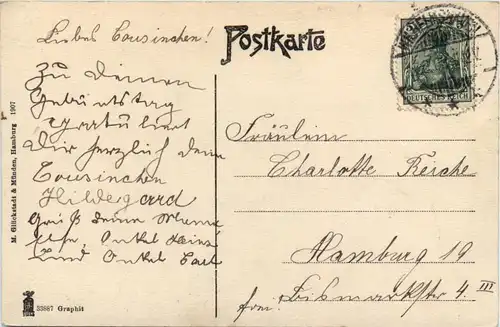 Liebes Cousinchen!
Zu Deinem
Geburtstag
gratuliert
Dir herzlich dein
Cousinchen
Hildegard
Grüß deine Mama
Onkel Heinz
und Onkel Carl
Postkarte
DEUTSCHES REICH
Fräulein
Charlotte Reiche
Hamburg 19
Bismarckstr 4 III
frei.
M. Glückstadt & Münden, Hamburg 1907
33887 Graphit